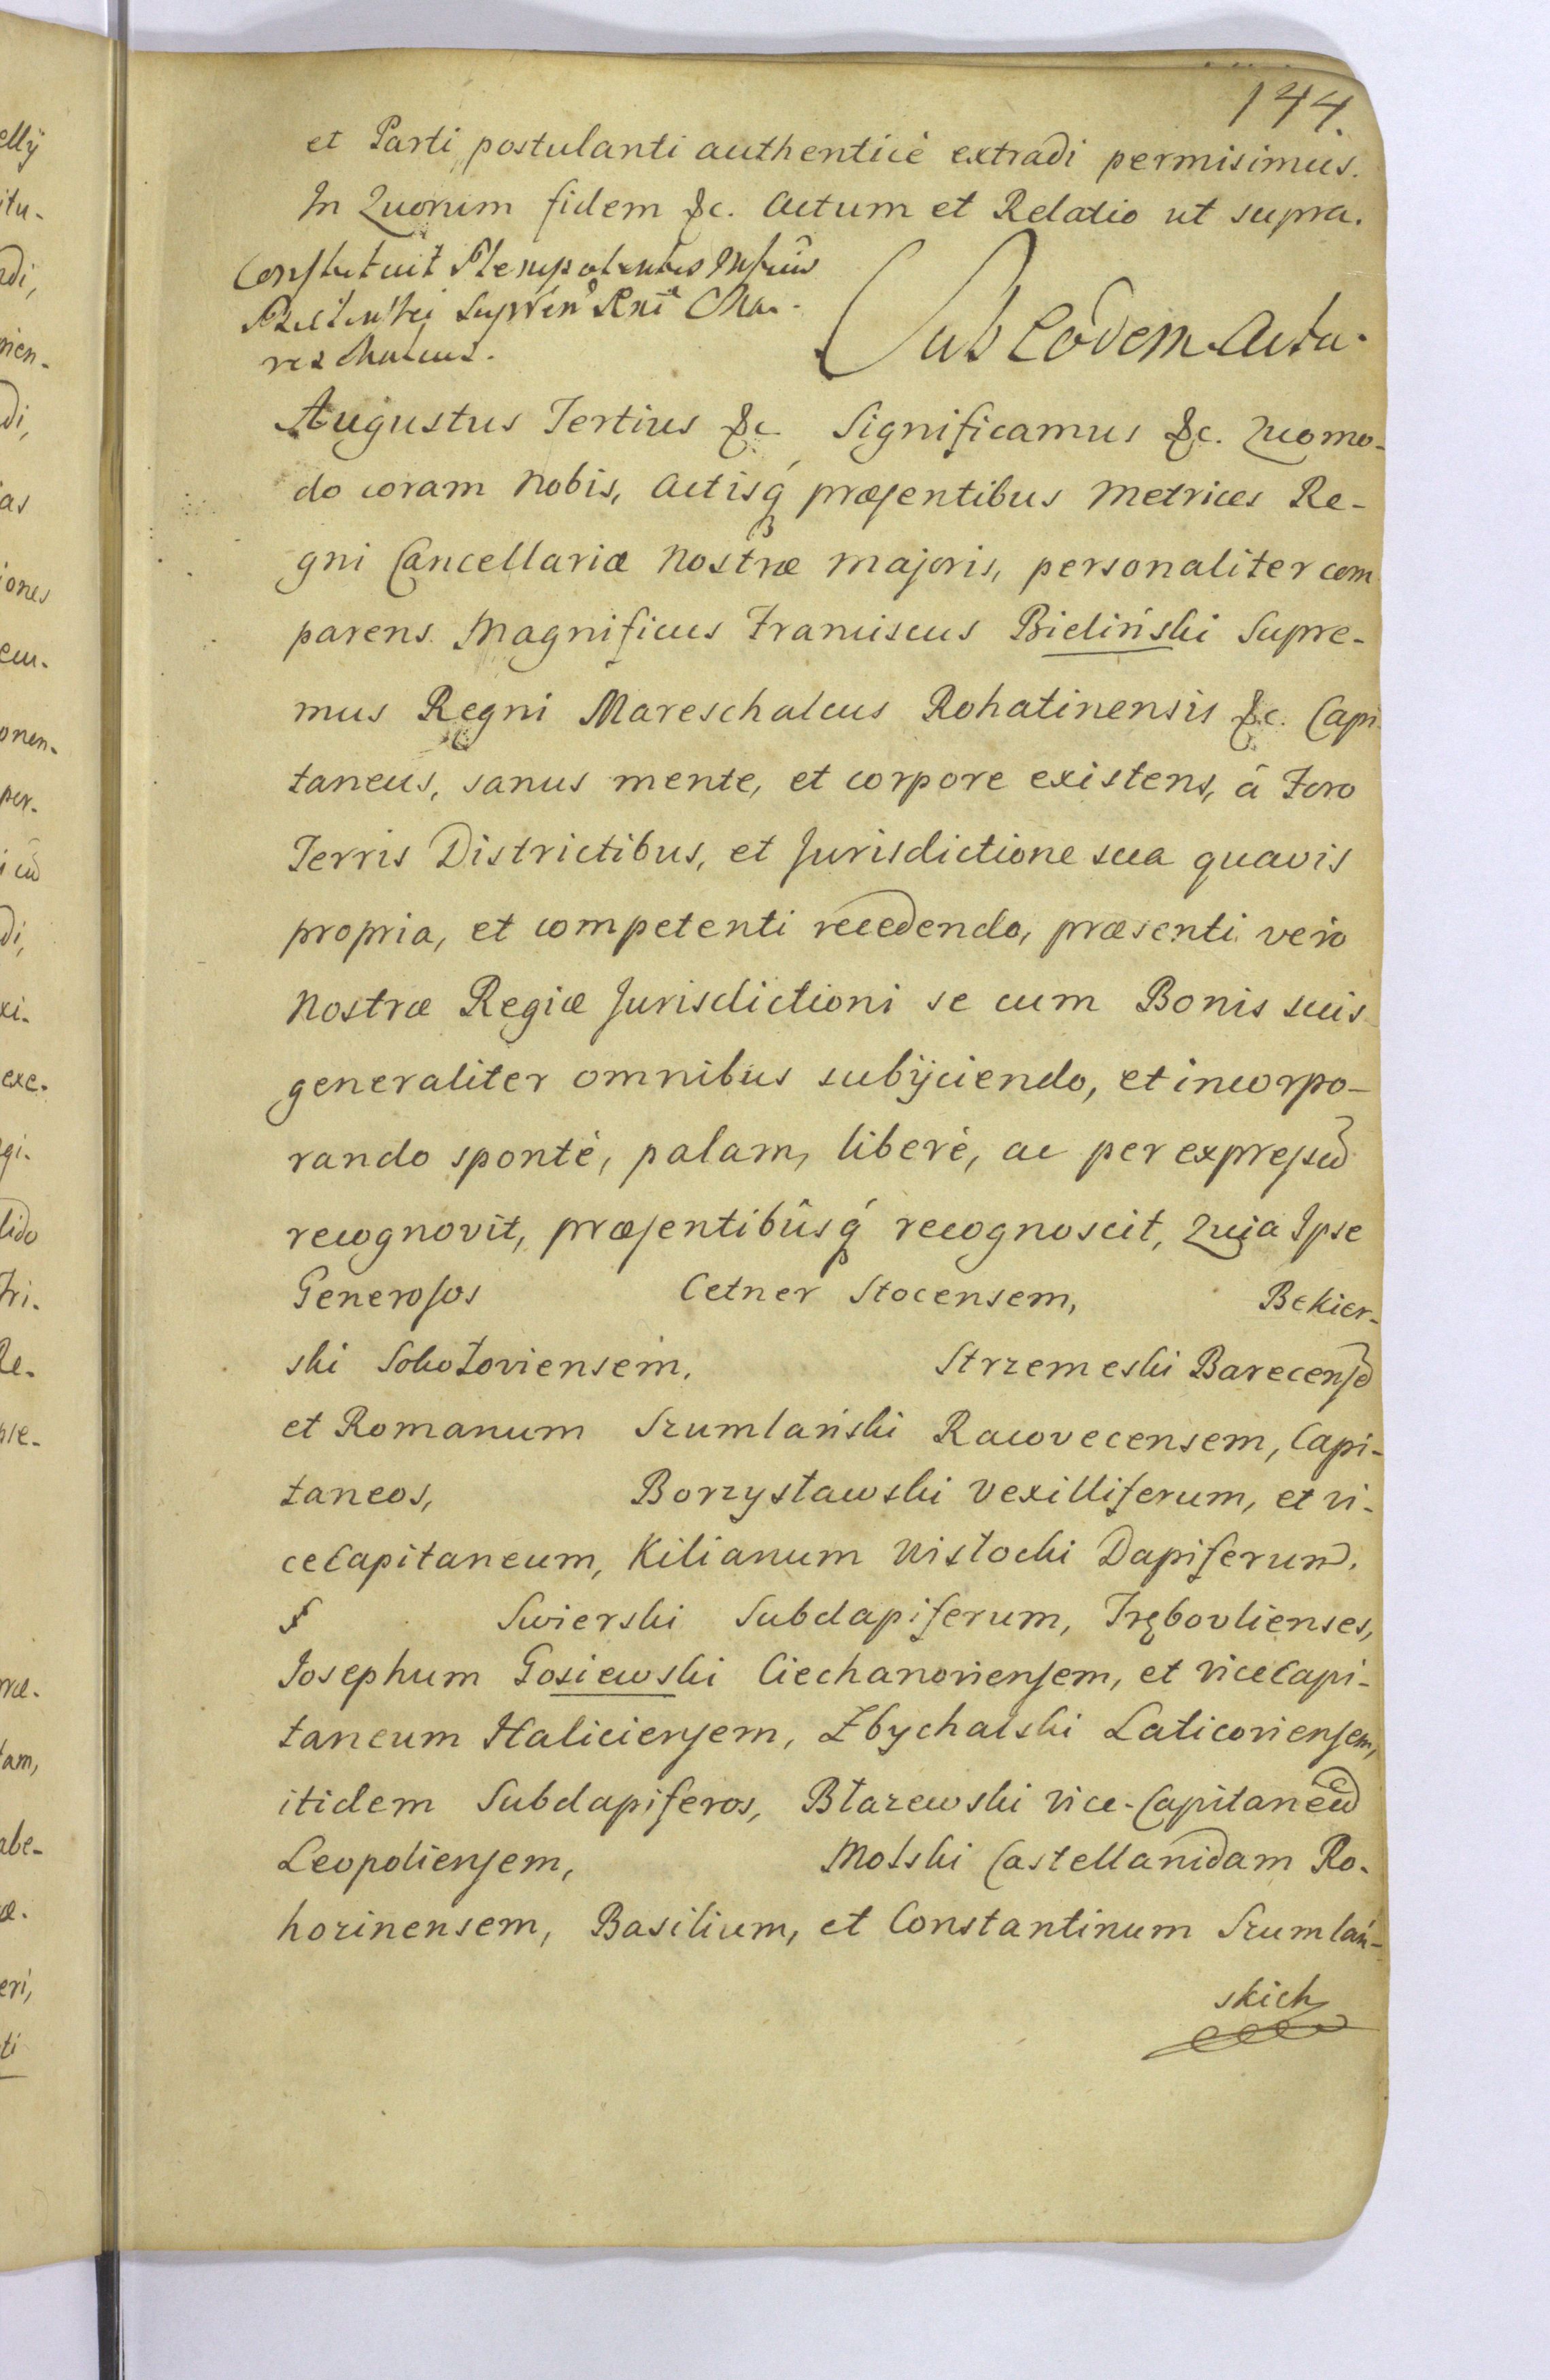 144.
et Parti postulanti authenticè extradi permisimus.
In Quorum fidem &c. Actum et Relatio ut supra.
Constituit Plenipotentes
Mar-
reschalcus.
Sub Eodem Actu.
Augustus Tertius &c. Significamus &c. Quomo-
do coram Nobis, Actisq́ præsentibus Metrices Re-
gni Cancellariæ Nostræ Majoris, personaliter com
parens Magnificus Franciscus Bieliński Supre-
mus Regni Mareschalcus Rohatinensis &c. Capi-
taneus, sanus mente, et corpore existens, â Foro
Terris Districtibus, et Jurisdictione sua quavis
propria, et competenti recedendo, præsenti verò
Nostræ Regiæ Jurisdictioni se cum Bonis suis
generaliter omnibus subijciendo, et incorpo-
rando spontè, palam, liberè, ac per expressũ
recognovit, præsentibûsq́ recognoscit, Quia Ipse
Generosos Cetner Stocensem, Bekier-
ski Sokołoviensem, Strzemeski Barecensẽ
et Romanum Szumlański Racovecensem, Capi-
taneos, Borzysławski Vexilliferum, et Vi-
ceCapitaneum, Kilianum Wisłocki Dapiferum,
Swierski Subdapiferum, Trębovlienses,
Josephum Gosiewski Ciechanoviensem, et ViceCapi-
taneum Haliciensem, Zbychalski Laticoviensem,
itidem Subdapiferos, Błazewski Vice-Capitaneũ
Leopoliensem, Molski Castellanidam Ro-
hozinensem, Basilium, et Constantinum Szumlań-
skich